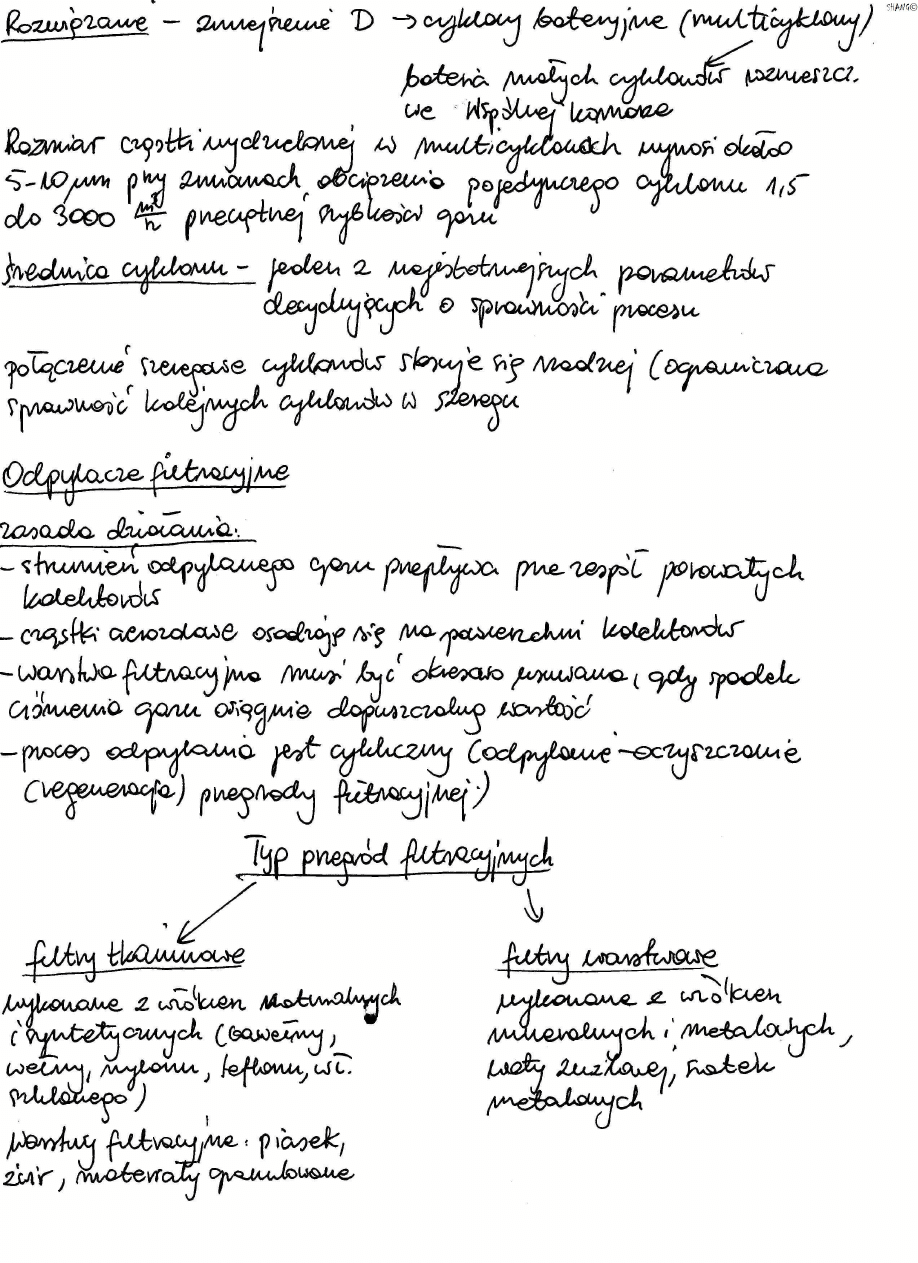 SHANG©
Rozwiązanie – zmniejszenie D → cyklony bateryjne (multicyklony)
bateria małych cyklonów rozmieszcz.
we wspólnej komorze
Rozmiar cząstki wydzielonej w multicyklonach wynosi około
5-10 µm przy zmianach obciążenia pojedynczego cyklonu 1,5
do 3000 m³/h przeciętnej szybkości gazu
średnica cyklonu – jeden z najistotniejszych parametrów
decydujących o sprawności procesu
połączenie szeregowe cyklonów stosuje się rzadziej (ograniczona
sprawność kolejnych cyklonów w szeregu
Odpylacze filtracyjne
zasada działania:
– strumień odpylanego gazu przepływa prze zespół porowatych
kolektorów
– cząstki aerozolowe osadzają się na powierzchni kolektorów
– warstwa filtracyjna musi być okresowo usuwana, gdy spadek
ciśnienia gazu osiągnie dopuszczalną wartość
– proces odpylania jest cykliczny (odpylanie – oczyszczanie
(regeneracja) przegrody filtracyjnej)
Typ przegród filtracyjnych
filtry tkaninowe
filtry warstwowe
wykonane z włókien naturalnych
i syntetycznych (bawełny,
wełny, nylonu, teflonu, wł.
szklanego)
wykonane z włókien
mineralnych i metalowych,
waty żużlowej, siatek
metalowych
Warstwy filtracyjne: piasek,
żwir, materiały granulowane